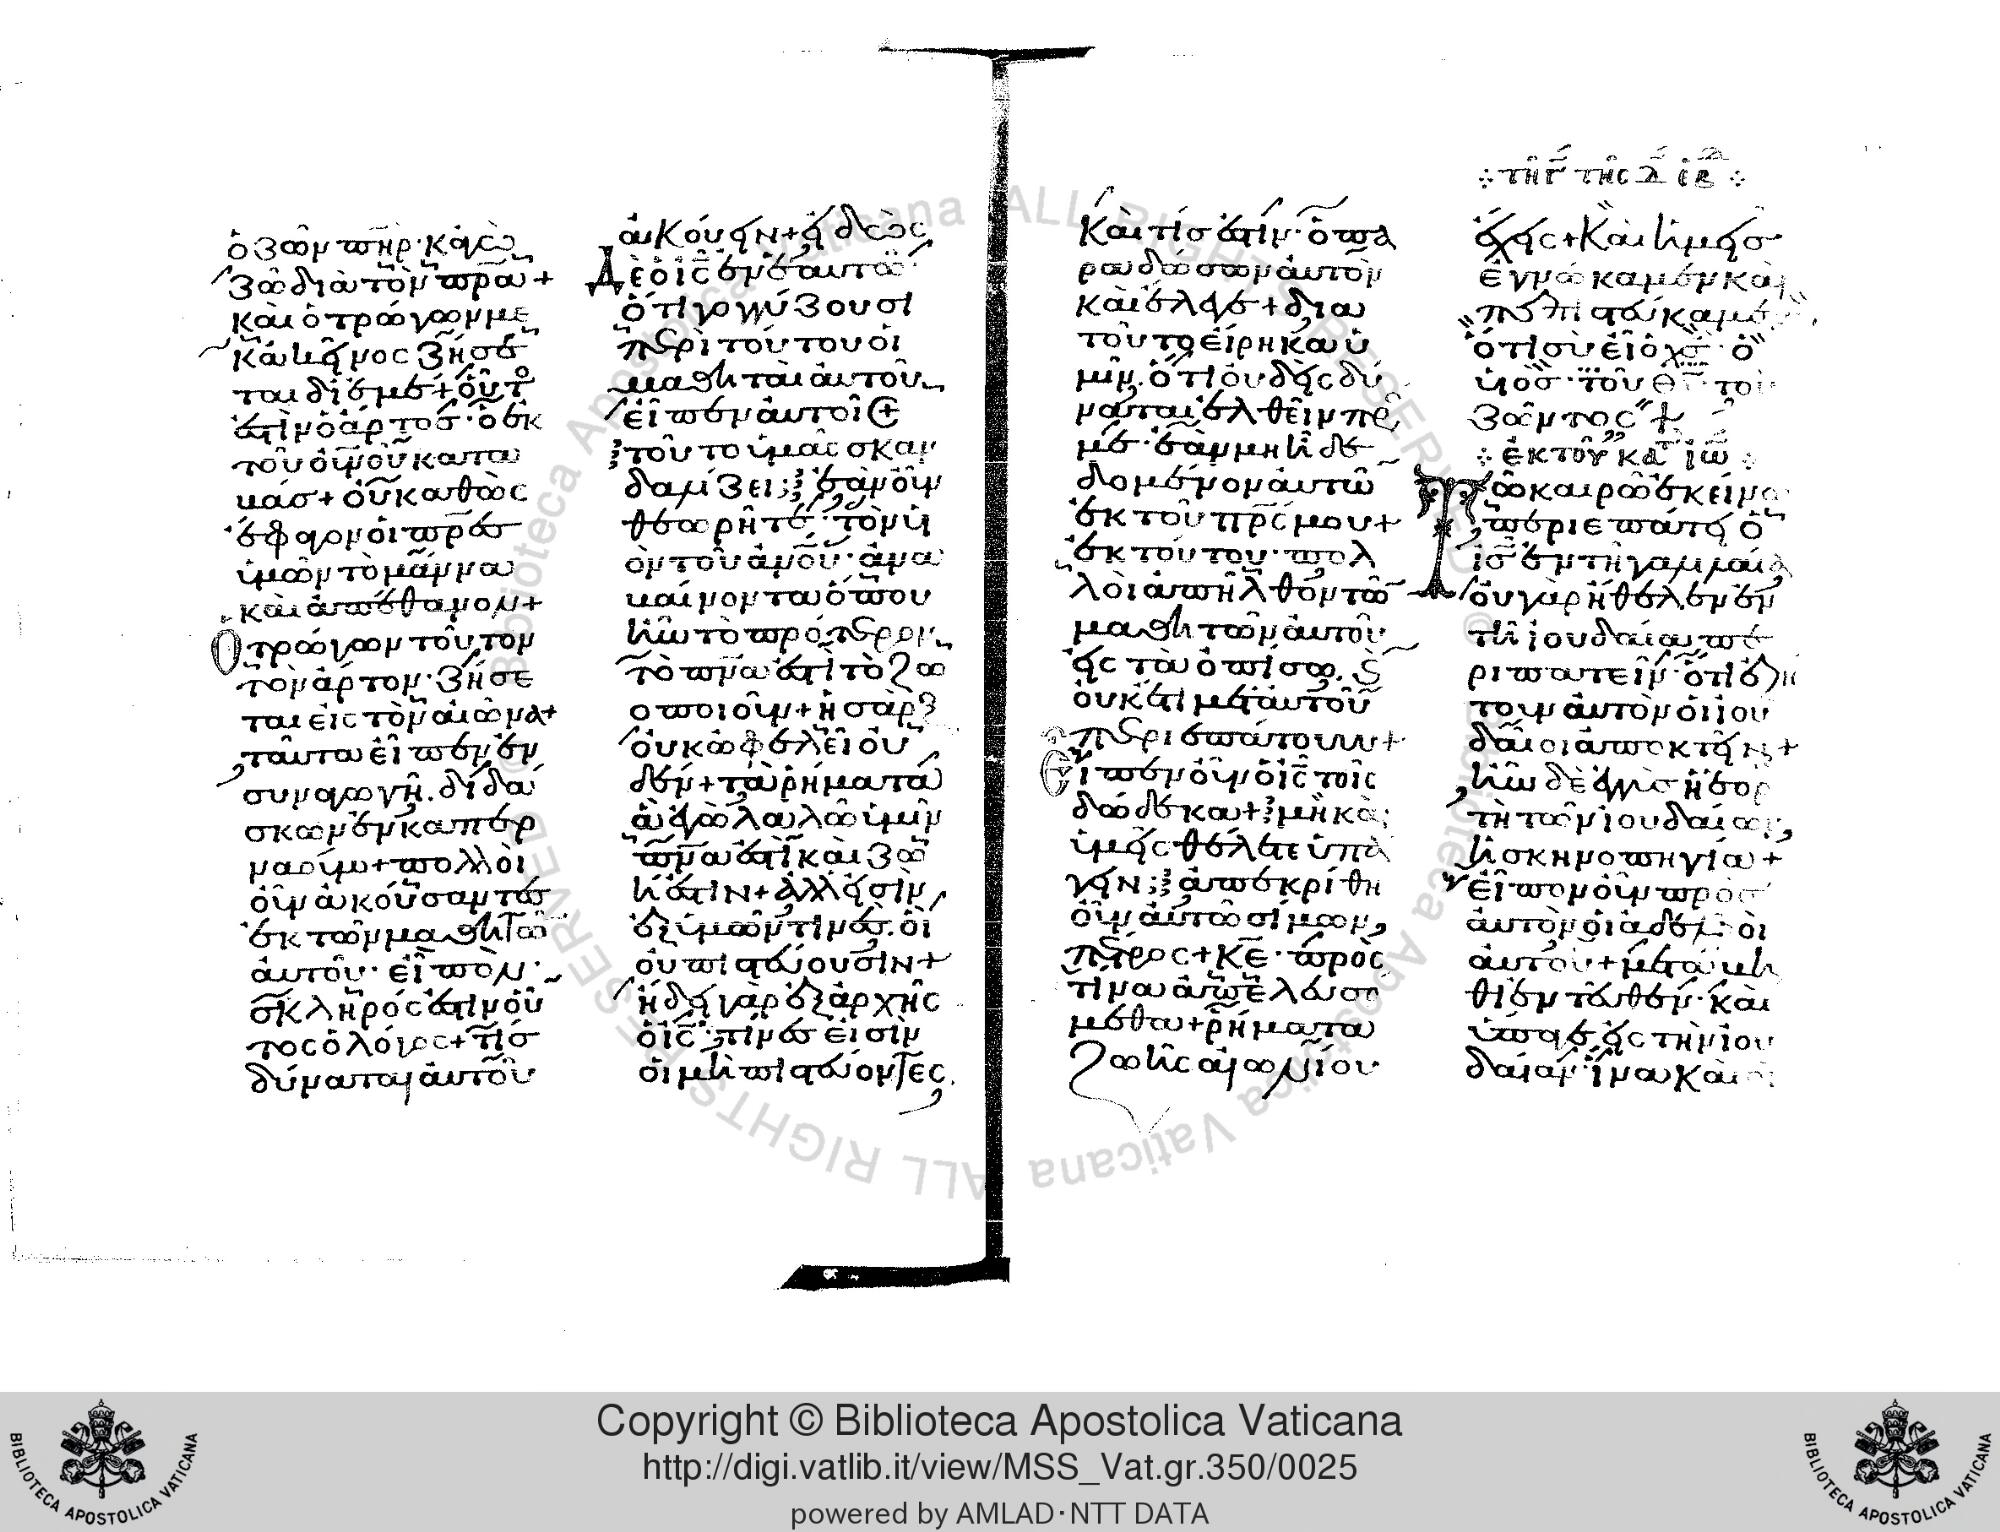 ὁ ζῶν πηρ· κἀγὼ
ζῶ διὰ τὸν πρα+
καὶ ὁ τρώγων με
κἀκεῖνος ζήσε
ται δι ἐμέ+ οὗτο
ἐστὶν ὁ ἄρτος· ὁ ἐκ
τοῦ οὐνοῦ κατα
βάσ+ οὐ καθὼς
ἔφαγον οἱ πρεσ
ὑμῶν τὸ μάννα
καὶ ἀπέθανον+
Ὁ τρώγων τοῦτον
τὸν ἄρτον· ζήσε
ται εἰς τὸν αἰῶνα+
ταῦτα εἶπεν ἐν
συναγωγῆ. διδά
σκων ἐν καπερ
ναούμ+ πολλοὶ
οὖν ἀκούσαντες
ἐκ τῶν μαθητῶ
αὐτοῦ· εἶπον·
σκληρός ἐστιν οὗ
τος ὁ λόγος+ τίς
δύναται αὐτοῦ
ἀκούειν+ εἰδὼς
Δὲ ὁ ις ἐν ἑαυτῶ·
ὅτι γογγύζουσι
περὶ τούτου οἱ
μαθηταὶ αὐτοῦ
εἶπεν αὐτοῖς+
τοῦτο ὑμᾶς σκαν
δαλίζει; ἐὰν οὖν
θεωρῆτε· τὸν υἱ
ὸν τοῦ ἀνου· ἀνα
βαίνοντα ὅπου
ἦν τὸ πρότερον
τὸ πνα ἐστὶ τὸ ζω
οποιοῦν+ ἡ σὰρξ
οὐκ ὠφελεῖ οὐ
δέν+ τὰ ῥήματα
ἃ ἐγὼ λαλῶ ὑμῖν
πνα ἐστὶ καὶ ζωή
ἐστιν+ ἀλλ εἰσὶν
ἐξ ὑμῶν τινες· οἳ
οὐ πιστεύουσιν+
ἤδει γὰρ ἐξ ἀρχῆς
ὁ ις· τίνες εἰσὶν
οἱ μὴ πιστεύοντες
Καὶ τίς ἐστιν· ὁ πα
ραδώσων αὐτὸν
καὶ ἔλεγε+ δια
τοῦτο εἴρηκα ὑ
μῖν· ὅτι οὐδεὶς δύ
ναται ἐλθεῖν πρς
με· ἐὰν μὴ ἦ δε
δομένον αὐτῶ
ἐκ τοῦ πρς μου+
ἐκ τούτου· πολ
λοὶ ἀπῆλθον τῶ
μαθητῶν αὐτοῦ
εἰς τὰ ὀπίσω. καὶ
οὐκέτι μετ αὐτοῦ
περιεπάτουν+
Εἶπεν οὖν ὁ ις τοῖς
δώδεκα+ μὴ καὶ
ὑμεῖς θέλετε ὑπά
γειν; ἀπεκρίθη
οὖν αὐτῶ σίμων
πέτρος+ κε· πρὸς
τίνα ἀπελευσό
μεθα+ ῥήματα
ζωῆς αἰωνίου
τῆ γ τῆς δ ἑβ
ἔχεις+ Καὶ ἡμεῖς
ἐγνώκαμεν καὶ
πεπιστεύκαμεν
ὅτι σὺ εἶ ὁ χς· ὁ
υἱὸς· τοῦ θυ· τοῦ
ζῶντος+
ἐκ τοῦ κατ ιω
Τῶ καιρῶ ἐκείνω
περιεπάτει ὁ
ις ἐν τῆ γαλιλαία
οὐ γὰρ ἤθελεν ἐν
τῆ ἰουδαία πε
ριπατεῖν· ὅτι ἐζή
τουν αὐτὸν οἱ ἰου
δαῖοι ἀποκτεῖν+
ἦν δὲ ἐγγὺς ἡ ἑορ
τὴ τῶν ἰουδαίων
ἡ σκηνοπηγία+
εἶπον οὖν πρὸς
αὐτὸν οἱ ἀδελφοὶ
αὐτοῦ+ μετάβη
θι ἐντεῦθεν· καὶ
ὕπαγε εἰς τὴν ἰου
δαίαν· ἵνα καὶ οἱ
Copyright © Biblioteca Apostolica Vaticana
http://digi.vatlib.it/view/MSS_Vat.gr.350/0025
powered by AMLAD·NTT DATA
BIBLIOTECA APOSTOLICA VATICANA
BIBLIOTECA APOSTOLICA VATICANA